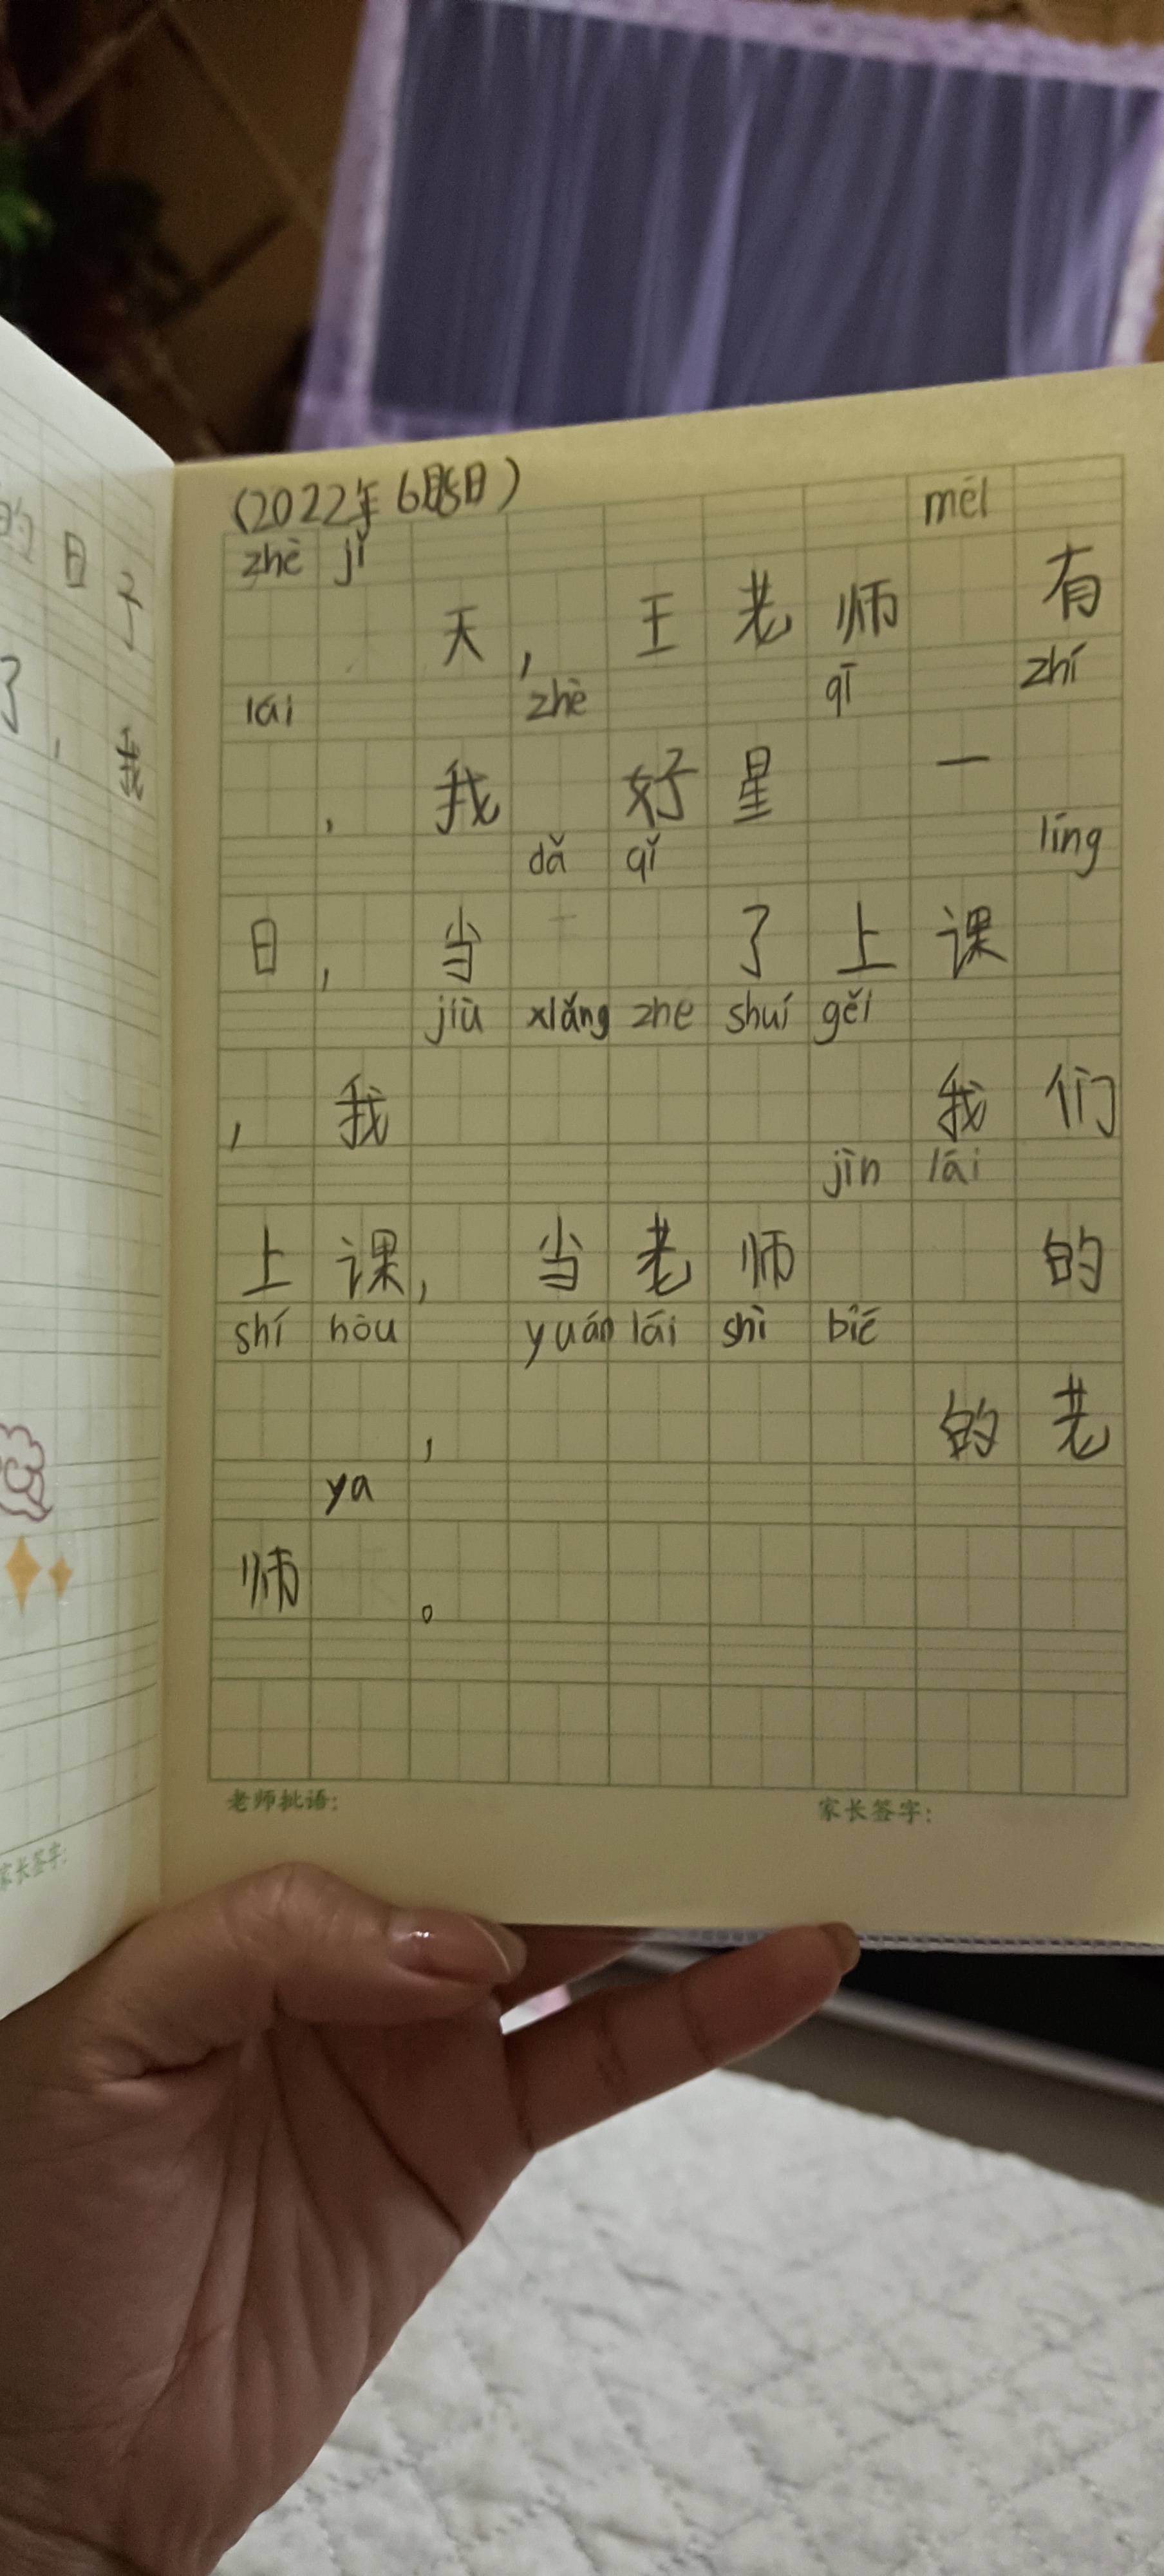 (2022年6月8日)
zhè jǐ méi
天，王老师 有
lái zhè qī zhí
，我 好星 一
dǎ qǐ líng
日，当 了上课
jiù xiǎng zhe shuí gěi
，我 我们
jìn lái
上课，当老师 的
shí hòu yuán lái shì bié
， 的老
ya
师 。
老师批语： 家长签字：
的日子
了，我
家长签字：